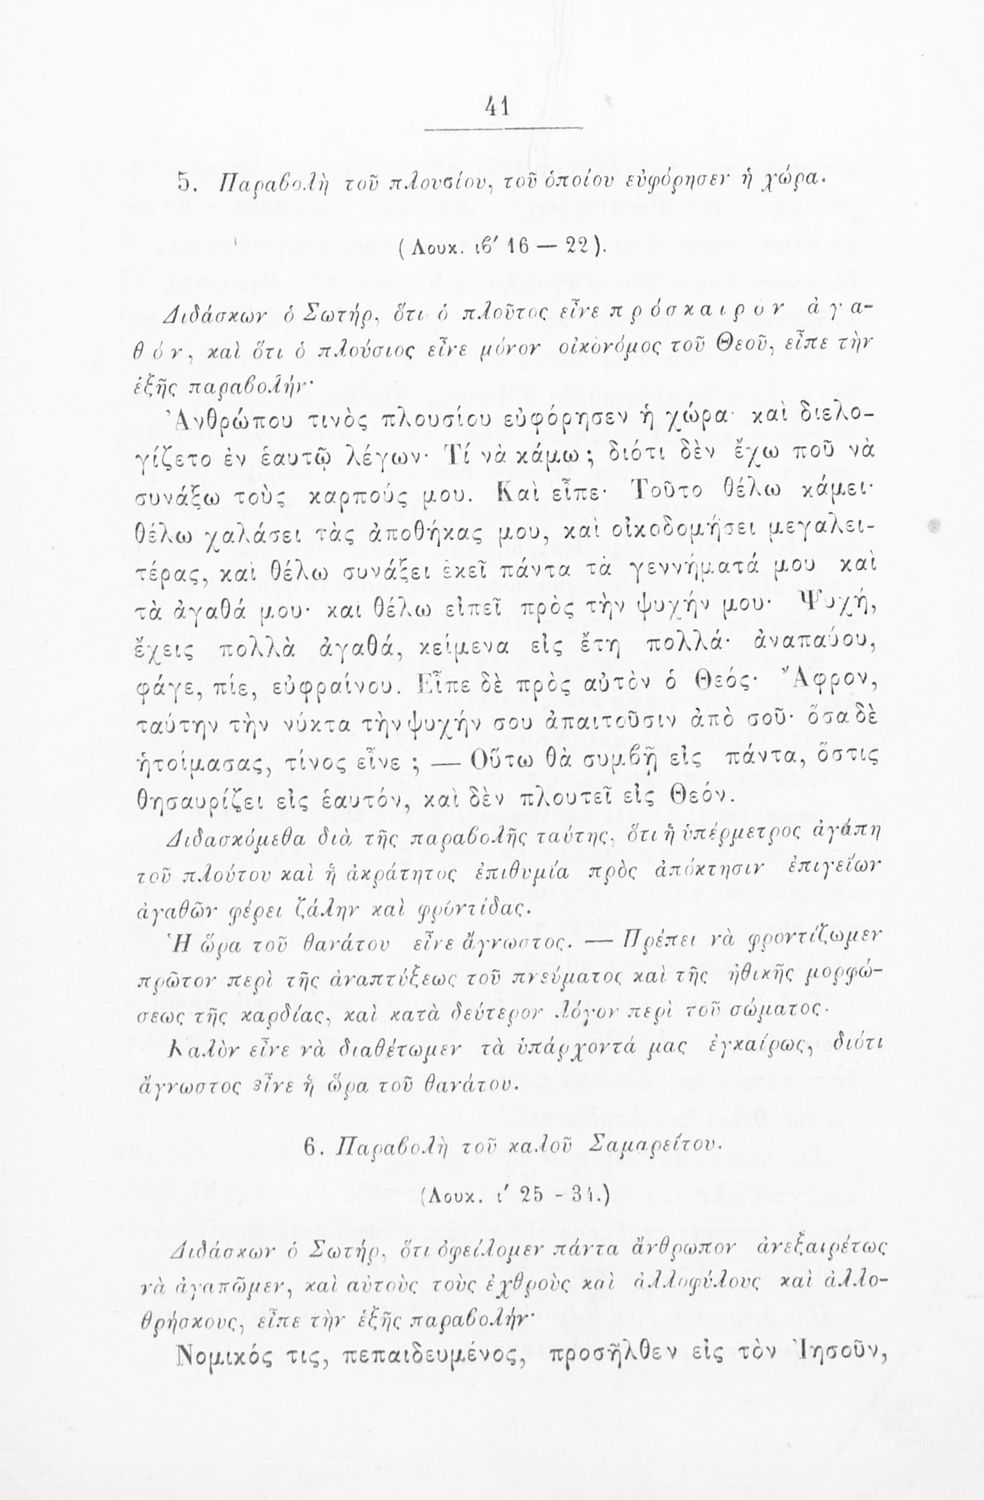 41
5. Παραβολὴ τοῦ πλουσίου, τοῦ ὁποίου εὐφόρησεν ἡ χώρα.
(Λουκ. ιβ′ 16 — 22).
Διδάσκων ὁ Σωτήρ, ὅτι ὁ πλοῦτος εἶνε πρόσκαιρον ἀγα-
θόν, καὶ ὅτι ὁ πλούσιος εἶνε μόνον οἰκονόμος τοῦ Θεοῦ, εἶπε τὴν
ἑξῆς παραβολήν·
Ἀνθρώπου τινὸς πλουσίου εὐφόρησεν ἡ χώρα· καὶ διελο-
γίζετο ἐν ἑαυτῷ λέγων· Τί νὰ κάμω; διότι δὲν ἔχω ποῦ νὰ
συνάξω τοὺς καρπούς μου. Καὶ εἶπε· Τοῦτο θέλω κάμει·
θέλω χαλάσει τὰς ἀποθήκας μου, καὶ οἰκοδομήσει μεγαλει-
τέρας, καὶ θέλω συνάξει ἐκεῖ πάντα τὰ γεννήματά μου καὶ
τὰ ἀγαθά μου· καὶ θέλω εἰπεῖ πρὸς τὴν ψυχήν μου· Ψυχή,
ἔχεις πολλὰ ἀγαθά, κείμενα εἰς ἔτη πολλά· ἀναπαύου,
φάγε, πίε, εὐφραίνου. Εἶπε δὲ πρὸς αὐτὸν ὁ Θεός· Ἄφρον,
ταύτην τὴν νύκτα τὴν ψυχήν σου ἀπαιτοῦσιν ἀπὸ σοῦ· ὅσα δὲ
ἡτοίμασας, τίνος εἶνε ; — Οὕτω θὰ συμβῇ εἰς πάντα, ὅστις
θησαυρίζει εἰς ἑαυτόν, καὶ δὲν πλουτεῖ εἰς Θεόν.
Διδασκόμεθα διὰ τῆς παραβολῆς ταύτης, ὅτι ἡ ὑπέρμετρος ἀγάπη
τοῦ πλούτου καὶ ἡ ἀκράτητος ἐπιθυμία πρὸς ἀπόκτησιν ἐπιγείων
ἀγαθῶν φέρει ζάλην καὶ φρόντιδας.
Ἡ ὥρα τοῦ θανάτου εἶνε ἄγνωστος. — Πρέπει νὰ φροντίζωμεν
πρῶτον περὶ τῆς ἀναπτύξεως τοῦ πνεύματος καὶ τῆς ἠθικῆς μορφώ-
σεως τῆς καρδίας, καὶ κατὰ δεύτερον λόγον περὶ τοῦ σώματος.
Καλὸν εἶνε νὰ διαθέτωμεν τὰ ὑπάρχοντά μας ἐγκαίρως, διότι
ἄγνωστος εἶνε ἡ ὥρα τοῦ θανάτου.
6. Παραβολὴ τοῦ καλοῦ Σαμαρείτου.
(Λουκ. ι′ 25 - 34.)
Διδάσκων ὁ Σωτήρ, ὅτι ὀφείλομεν πάντα ἄνθρωπον ἀνεξαιρέτως
νὰ ἀγαπῶμεν, καὶ αὐτοὺς τοὺς ἐχθροὺς καὶ ἀλλοφύλους καὶ ἀλλο-
θρήσκους, εἶπε τὴν ἑξῆς παραβολήν·
Νομικός τις, πεπαιδευμένος, προσῆλθεν εἰς τὸν Ἰησοῦν,